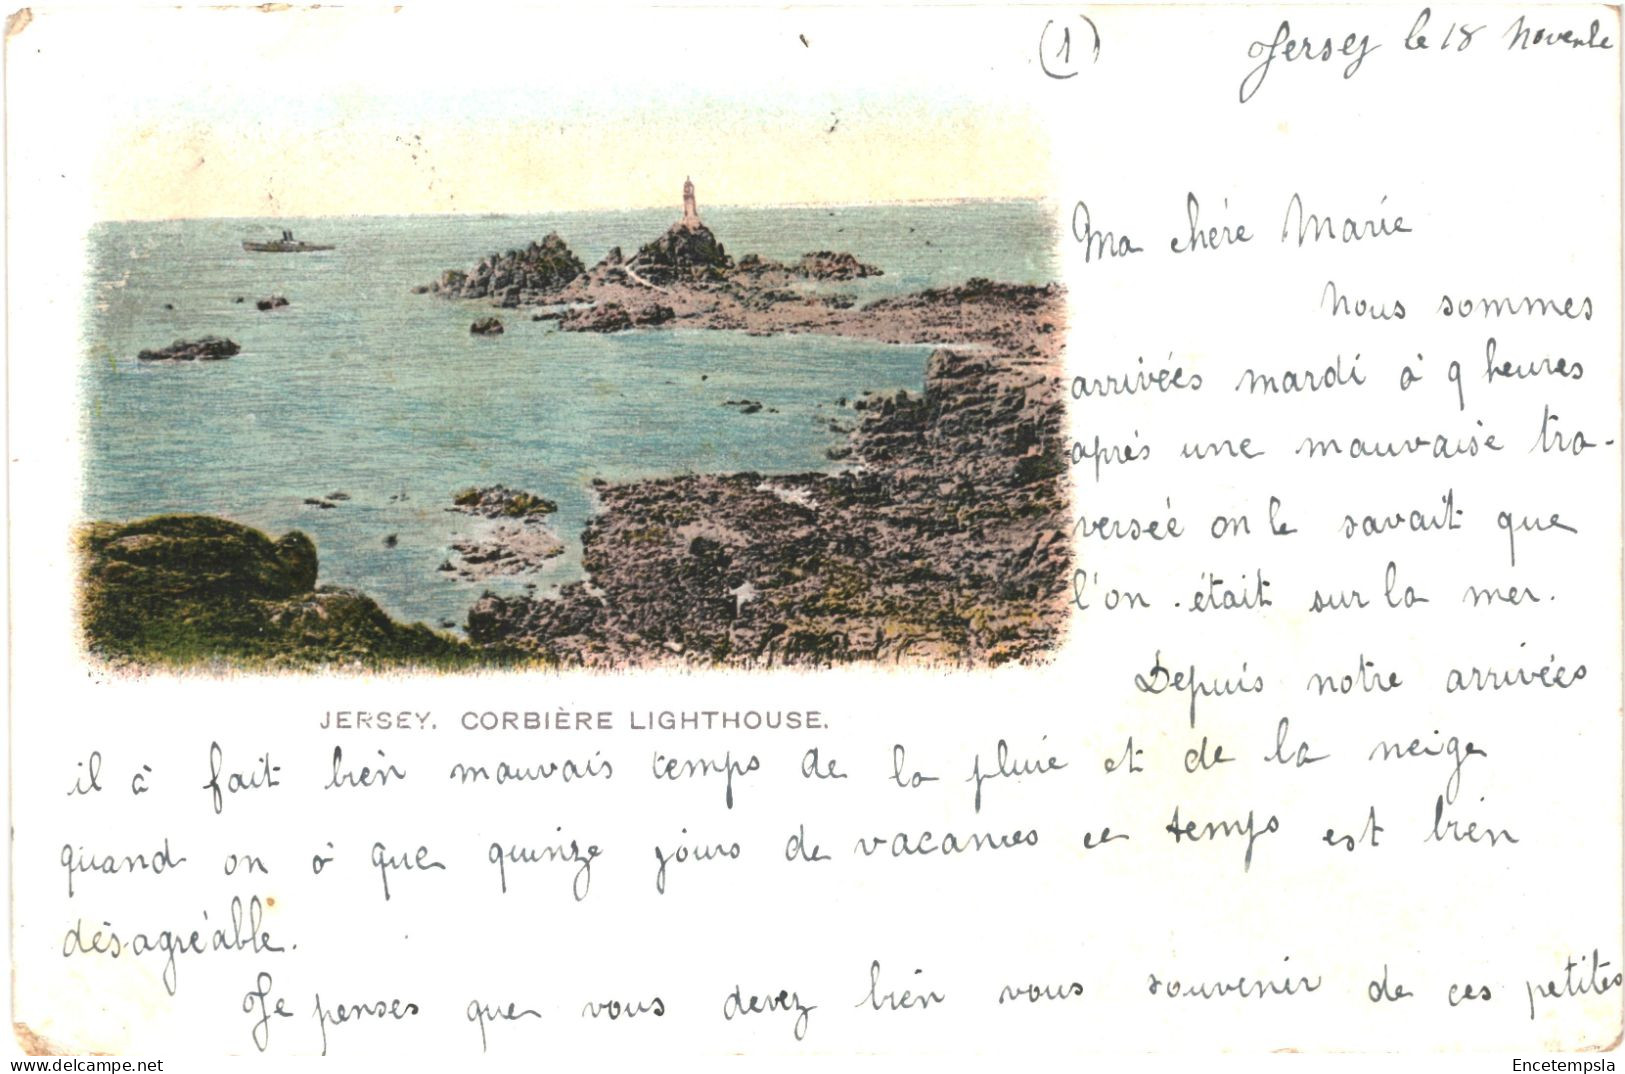 (1)
Jersey le 18 Novembre
Ma chère Marie
Nous sommes
arrivées mardi à 9 heures
après une mauvaise tra-
verseé on le savait que
l'on était sur la mer.
Depuis notre arrivées
JERSEY. CORBIÈRE LIGHTHOUSE.
il à fait bien mauvais temps de la pluie et de la neige
quand on à que quinze jours de vacances ce temps est bien
désagréable.
Je penses que vous devez bien vous souvenir de ces petites
Encetempsla